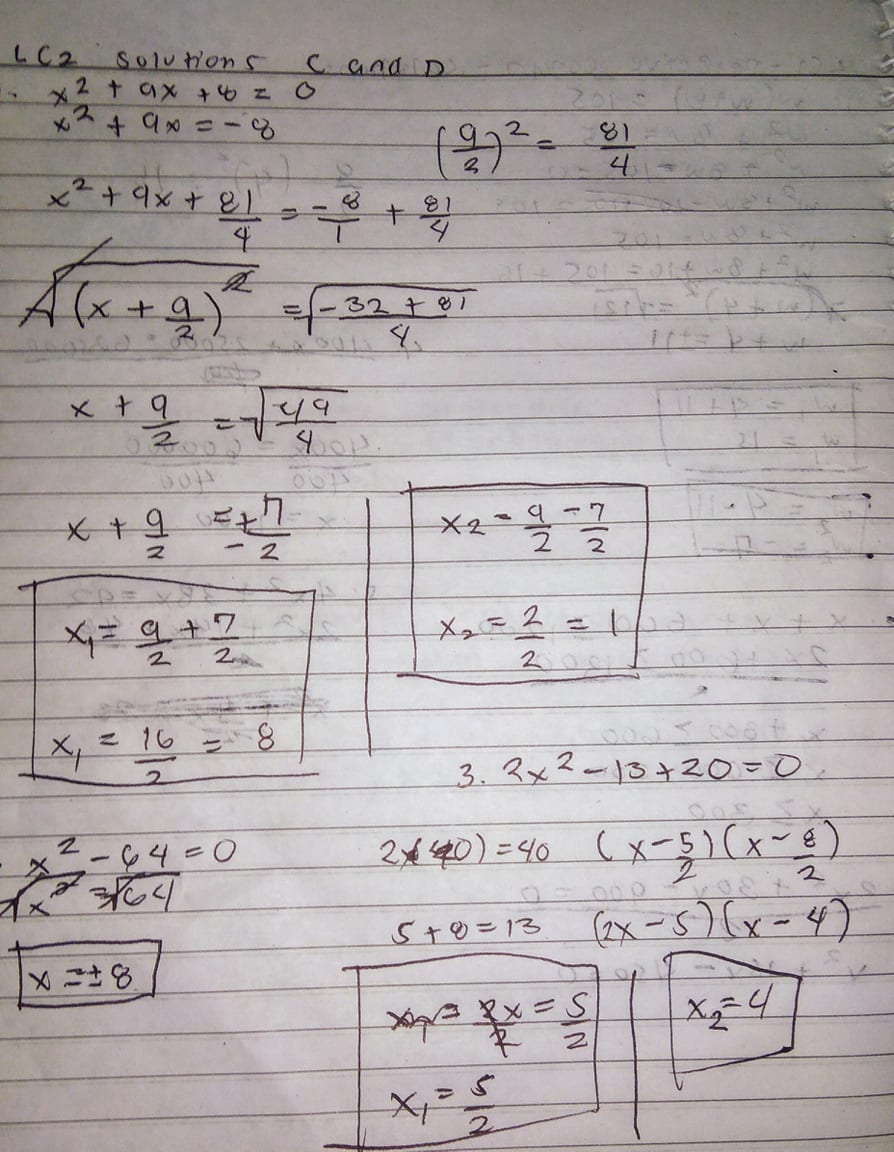 LC2 Solutions C and D
x² + 9x + 8 = 0
x² + 9x = -8
(9/2)² = 81/4
x² + 9x + 81/4 = -8/1 + 81/4
√(x + 9/2)² = √(-32 + 81)/4
x + 9/2 = √49/4
x + 9/2 = ±7/2
x₁ = 9/2 + 7/2
x₁ = 16/2 = 8
x₂ = 9/2 - 7/2
x₂ = 2/2 = 1
x² - 64 = 0
√x² = √64
x = ±8
3. 2x² - 13 + 20 = 0
2x(40) = 40 (x - 5/2)(x - 8/2)
5 + 8 = 13 (2x - 5)(x - 4)
2x/2 = 5/2
x₁ = 5/2
x₂ = 4